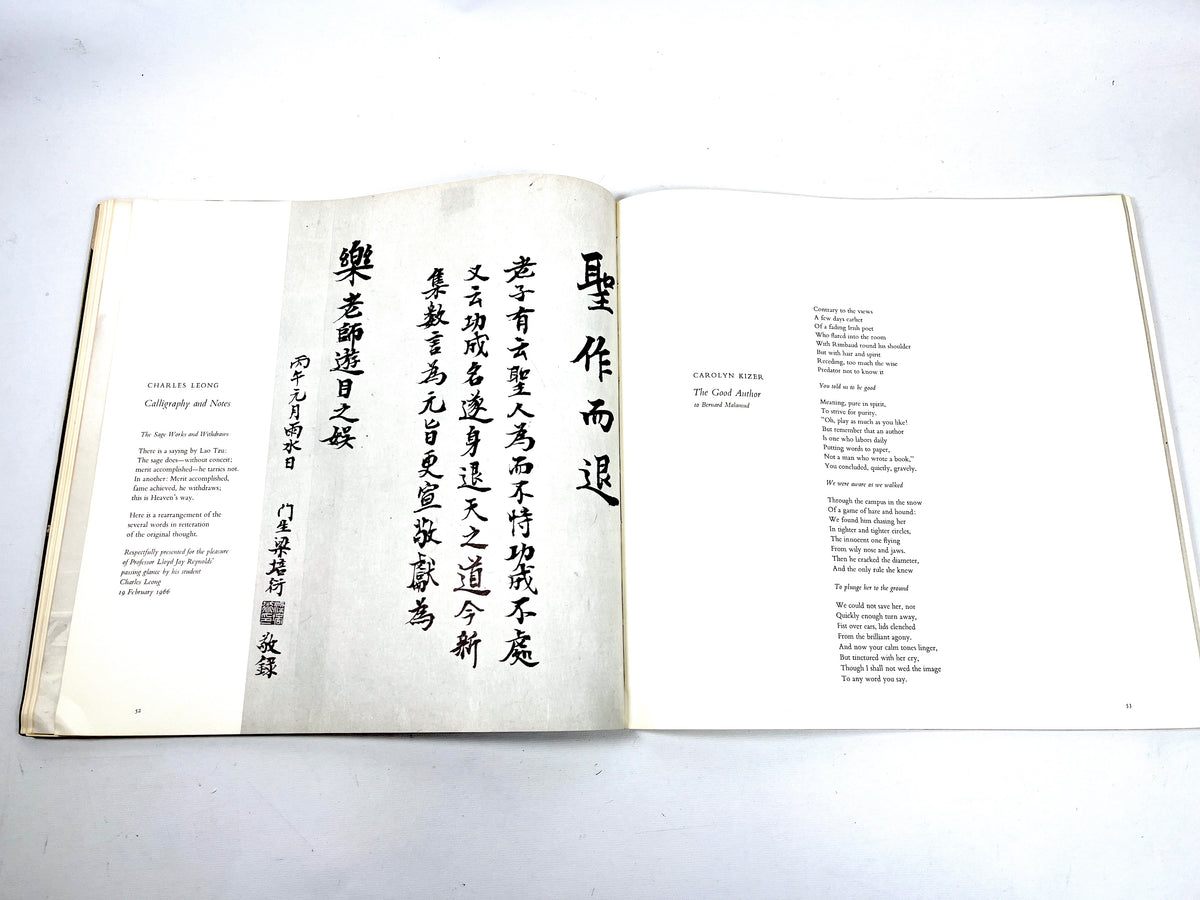 CHARLES LEONG
Calligraphy and Notes
The Sage Works and Withdraws
There is a saying by Lao Tzu:
The sage does—without conceit;
merit accomplished—he tarries not.
In another: Merit accomplished,
fame achieved, he withdraws;
this is Heaven's way.
Here is a rearrangement of the
several words in reiteration
of the original thought.
Respectfully presented for the pleasure
of Professor Lloyd Jay Reynolds'
passing glance by his student
Charles Leong
19 February 1966
52
聖作而退
老子有云聖人為而不恃功成不處
又云功成名遂身退天之道今新
集數言為元旨更宣敬獻為
樂老師遊目之娛
丙午元月雨水日
门生梁培衍
敬錄
CAROLYN KIZER
The Good Author
to Bernard Malamud
Contrary to the views
A few days earlier
Of a fading Irish poet
Who flared into the room
With Rimbaud round his shoulder
But with hair and spirit
Receding, too much the wise
Predator not to know it
You told us to be good
Meaning, pure in spirit,
To strive for purity.
"Oh, play as much as you like!
But remember that an author
Is one who labors daily
Putting words to paper,
Not a man who wrote a book,"
You concluded, quietly, gravely.
We were aware as we walked
Through the campus in the snow
Of a game of hare and hound:
We found him chasing her
In tighter and tighter circles,
The innocent one flying
From wily nose and jaws.
Then he cracked the diameter,
And the only rule she knew
To plunge her to the ground
We could not save her, not
Quickly enough turn away,
Fist over ears, lids clenched
From the brilliant agony.
And now your calm tones linger,
But tinctured with her cry,
Though I shall not wed the image
To any word you say.
53